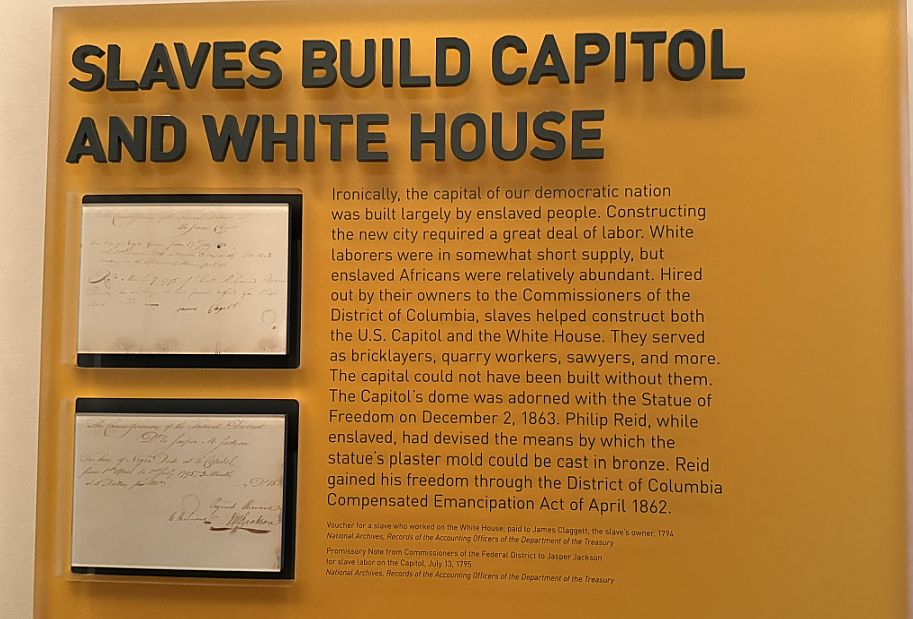 SLAVES BUILD CAPITOL
AND WHITE HOUSE
Ironically, the capital of our democratic nation
was built largely by enslaved people. Constructing
the new city required a great deal of labor. White
laborers were in somewhat short supply, but
enslaved Africans were relatively abundant. Hired
out by their owners to the Commissioners of the
District of Columbia, slaves helped construct both
the U.S. Capitol and the White House. They served
as bricklayers, quarry workers, sawyers, and more.
The capital could not have been built without them.
The Capitol's dome was adorned with the Statue of
Freedom on December 2, 1863. Philip Reid, while
enslaved, had devised the means by which the
statue's plaster mold could be cast in bronze. Reid
gained his freedom through the District of Columbia
Compensated Emancipation Act of April 1862.
Voucher for a slave who worked on the White House, paid to James Claggett, the slave's owner, 1794
National Archives, Records of the Accounting Officers of the Department of the Treasury
Promissory Note from Commissioners of the Federal District to Jasper Jackson
for slave labor on the Capitol, July 13, 1795
National Archives, Records of the Accounting Officers of the Department of the Treasury
The Commissioners of the Federal District
To Jasper M. Jackson
at the Capitol
from 1st April to 1st July 1795, 3 Months
at 5 Dollars per